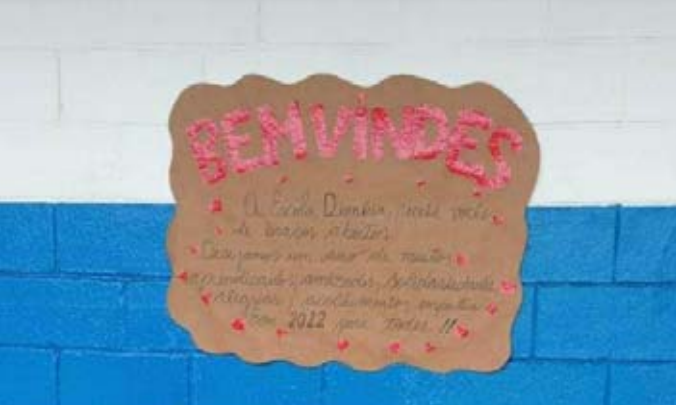 BEMVINDES
A Escola, recebe vocês
de braços abertos.
Desejamos um ano de muitos
aprendizados, amizades, solidariedade,
alegrias, acolhimentos, empatia
Bom 2022 para todes !!